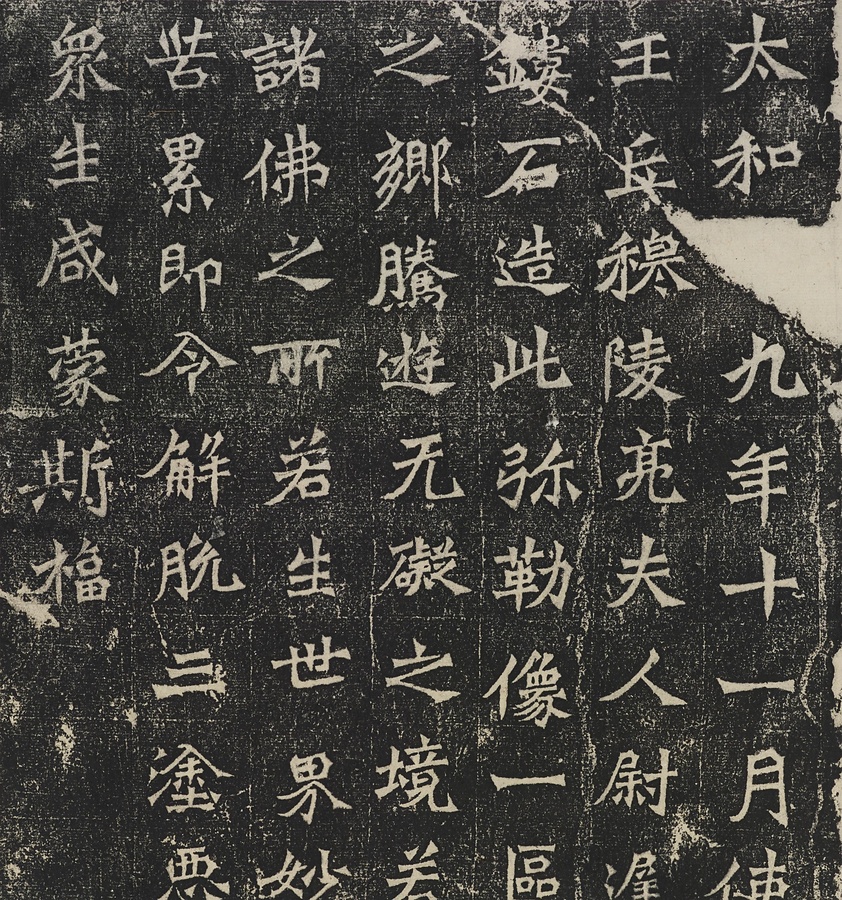 太和九年十一月使
王丘穆陵亮夫人尉遲
鏤石造此弥勒像一區
之鄉騰遊无礙之境若
諸佛之所若生世界妙
苦累即令解脱三塗惡
衆生咸蒙斯福